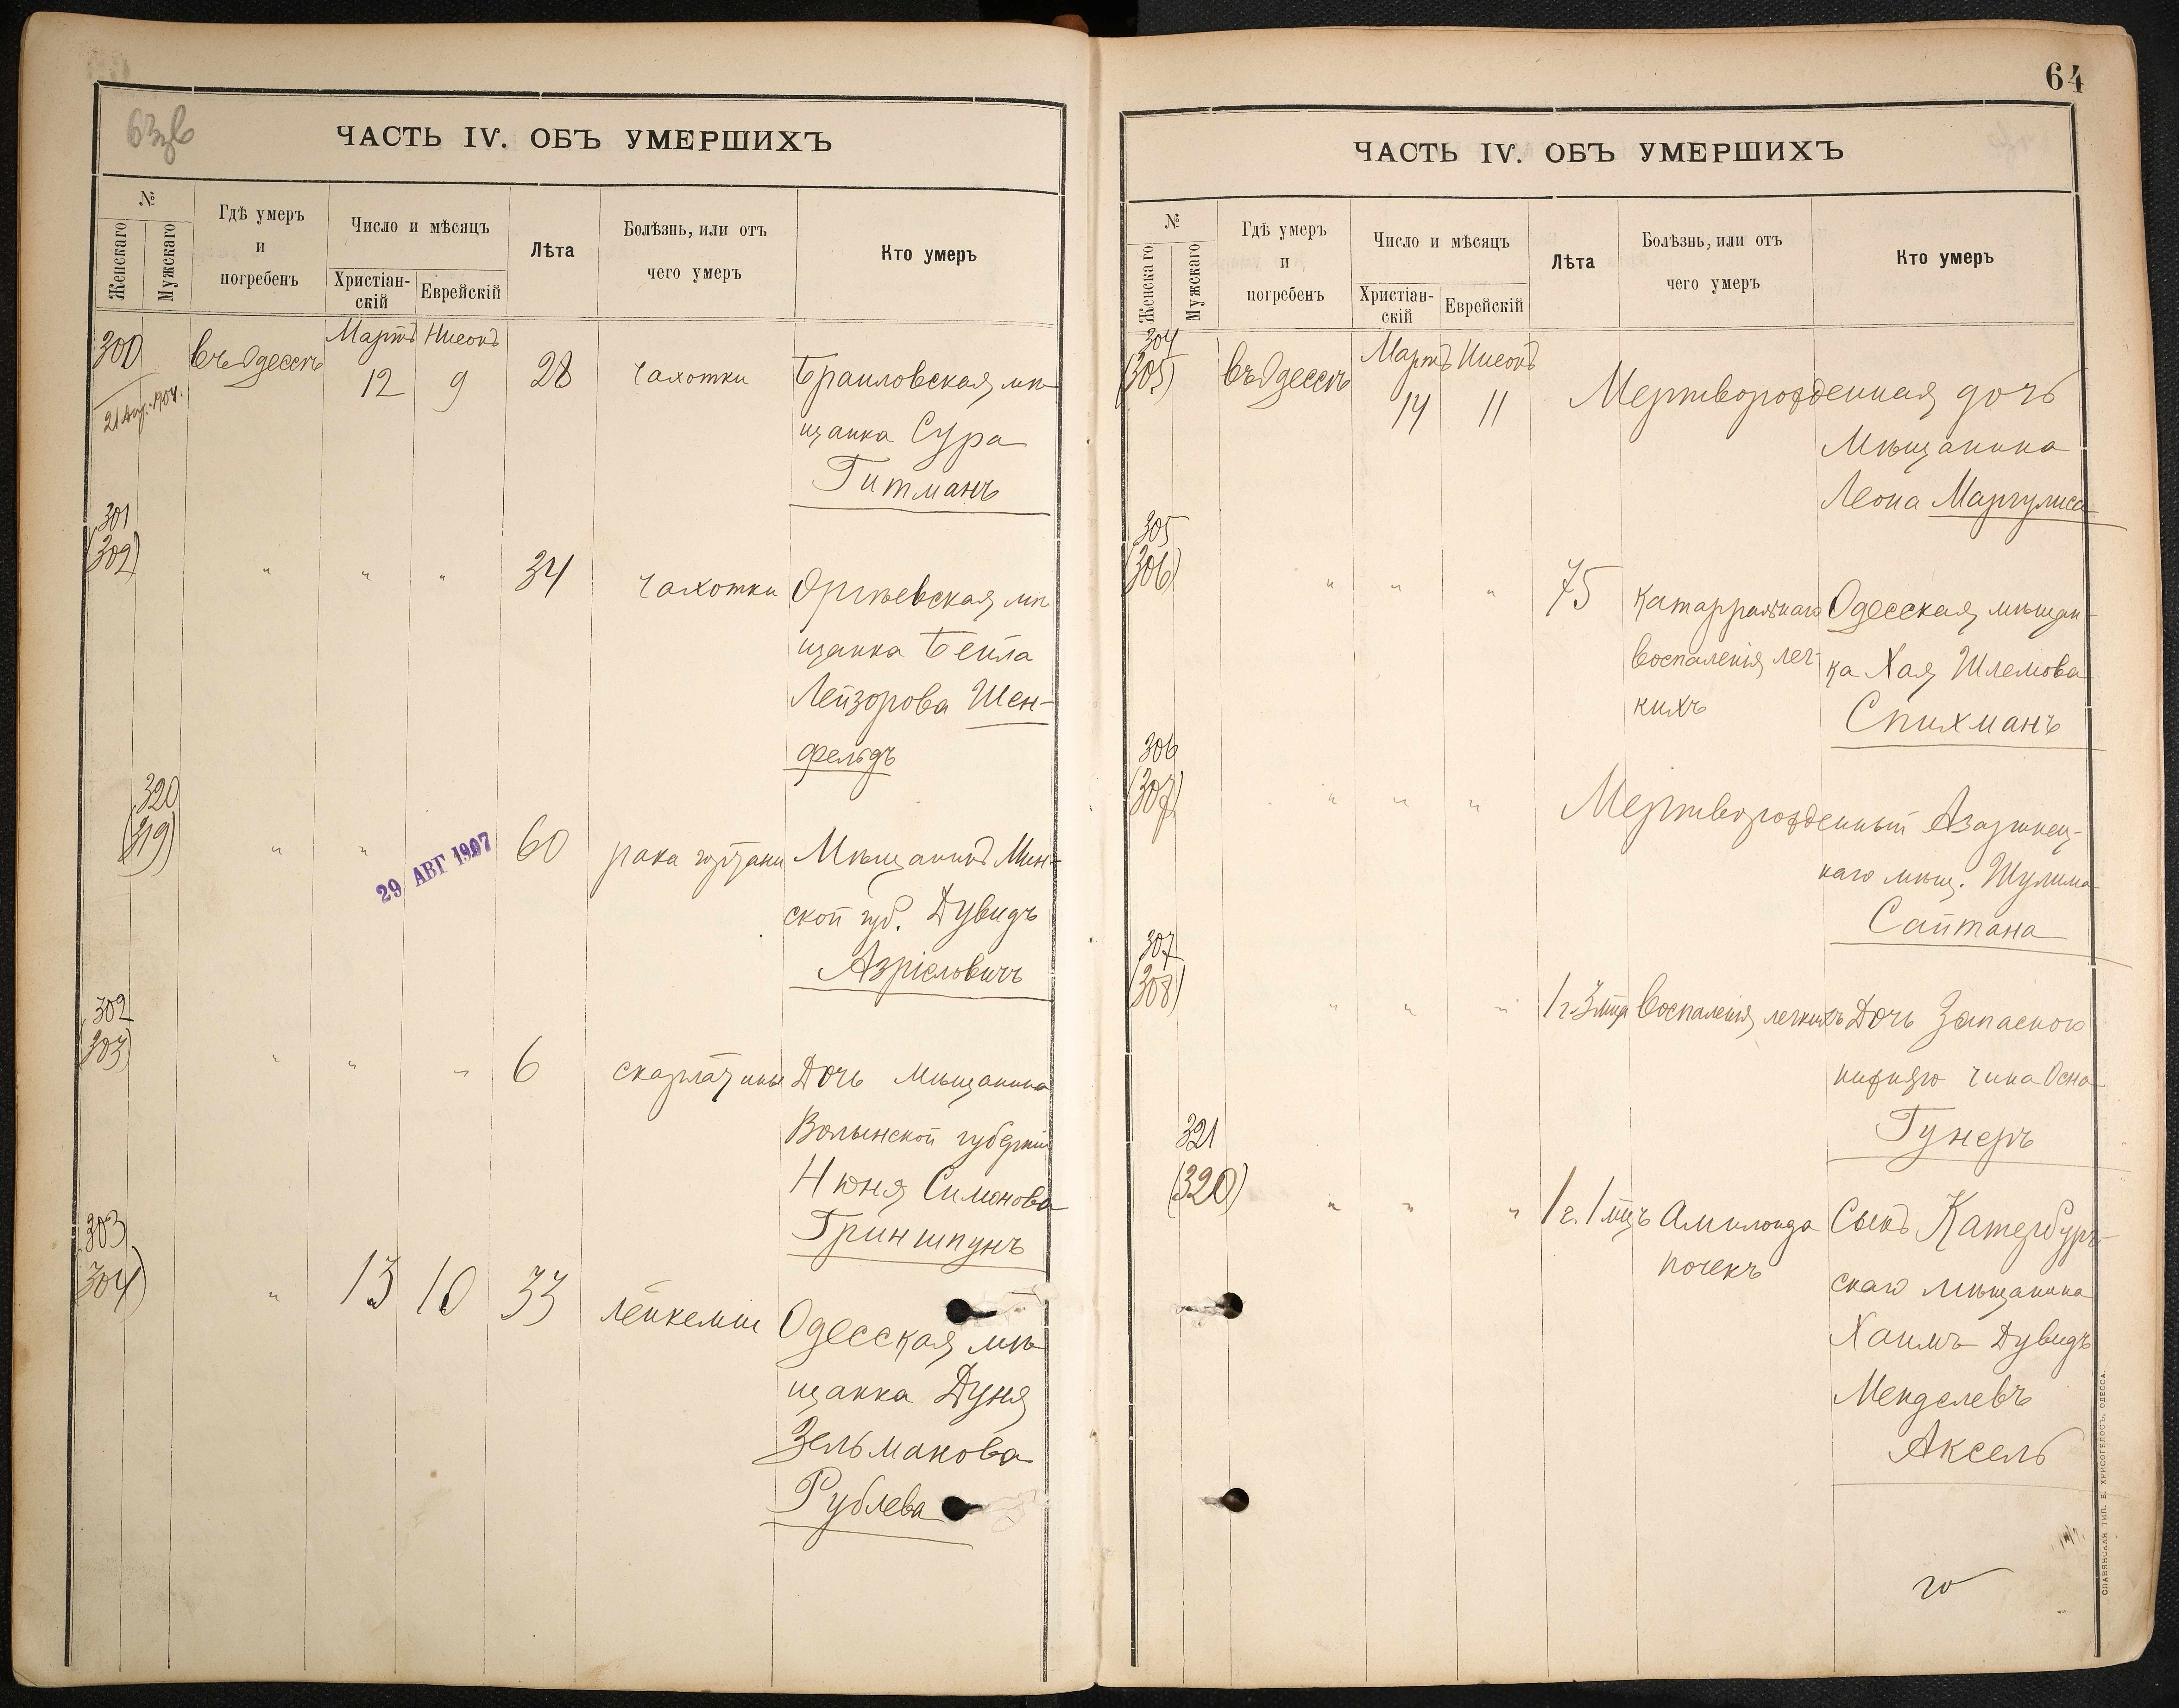 63 об
ЧАСТЬ IV. ОБЪ УМЕРШИХЪ
№
Женскаго
Мужскаго
Гдѣ умеръ
и
погребенъ
Число и мѣсяцъ
Христіан-
скій
Еврейскій
Лѣта
Болѣзнь, или отъ
чего умеръ
Кто умеръ
300
21 Авг. 1904.
въ Одессѣ
Мартъ Нисонъ
12 9 28 чахотки Браиловская мѣ-
щанка Сура
Гитманъ
301
(302)
" " " 34 чахотки Оргѣевская мѣ-
щанка Бейла
Лейзорова Шен-
фельдъ
320
(319)
" " 29 АВГ 1907 60 рака гортани Мѣщанинъ Мин-
ской губ. Дувидъ
Азріеловичъ
302
(303)
" " " 6 скарлатины Дочь мѣщанина
Волынской губерніи
Нюня Симонова
Гриншпунъ
303
(304)
" 13 10 33 лейкеміи Одесская мѣ-
щанка Дуня
Зельманова
Рублева
64
ЧАСТЬ IV. ОБЪ УМЕРШИХЪ
№
Женскаго
Мужскаго
Гдѣ умеръ
и
погребенъ
Число и мѣсяцъ
Христіан-
скій
Еврейскій
Лѣта
Болѣзнь, или отъ
чего умеръ
Кто умеръ
304
(305)
въ Одессѣ
Мартъ Нисонъ
14 11 Мертворожденная дочь
Мѣщанина
Леона Маргулиса
305
(306)
" " " 75 Катарральнаго Одесская мѣщан-
воспаленія лег- ка Хая Шлемова
кихъ Спихманъ
306
(307)
" " " Мертворожденный
наго мѣщ. Шулима
Сайтана
307
(308)
" " " 1 г. 3 мца Воспаленія легкихъ Дочь Запасного
нижняго чина
Гунеръ
321
(320)
" " " 1 г. 1 мцъ Амилоида Сынъ Катербург-
почекъ скаго мѣщанина
Хаимъ Дувидъ
Менделевъ
Аксель
СЛАВЯНСКАЯ ТИП. Е. ХРИСОГЕЛОСЪ, ОДЕССА.